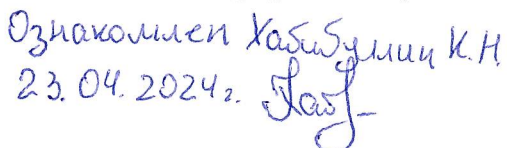 Ознакомлен Хабибуллин К.Н.
23.04.2024г.